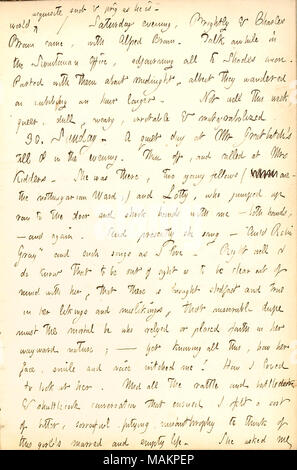 exquisite snob & prig as he is.
world Saturday evening, Brightly & Charles
Brown came, with Alfred Crown. Talk awhile in
the Lieutenant's Office, adjourning all to Shades were.
Parted with them about midnight, albeit they wandered
an hour longer. Not well this week
queer, dull, weary, irritable & undecided.
30. Sunday. A quiet day at Mr Greatbatch's
all in the evening. Then off, and called at Mrs
Kidders. She was there, two young fellows (one
the Ward,) and Lotty, who jumped up
ran to the door and shook hands with me — both hands,
— and again. And presently she sang — "Auld Robin
Gray" and such songs as I love. Right well I
do know that to be out of sight is to be clear out of
mind with her, that there is naught stedfast and true
in her likings and mislikings, that miserable dupe
must the mortal be who relyed or placed faith in her
wayward nature; — yet knowing all this, how her
face, smile and voice witched me! How I loved
to look at her. Mid all the rattle and battledore
& shuttlecock conversation that ensued I felt a sort
of bitter, sorrowful, pitying, to think of
this girl's marred and empty life. She asked me
alamy
Image ID: MAKPEP
www.alamy.com